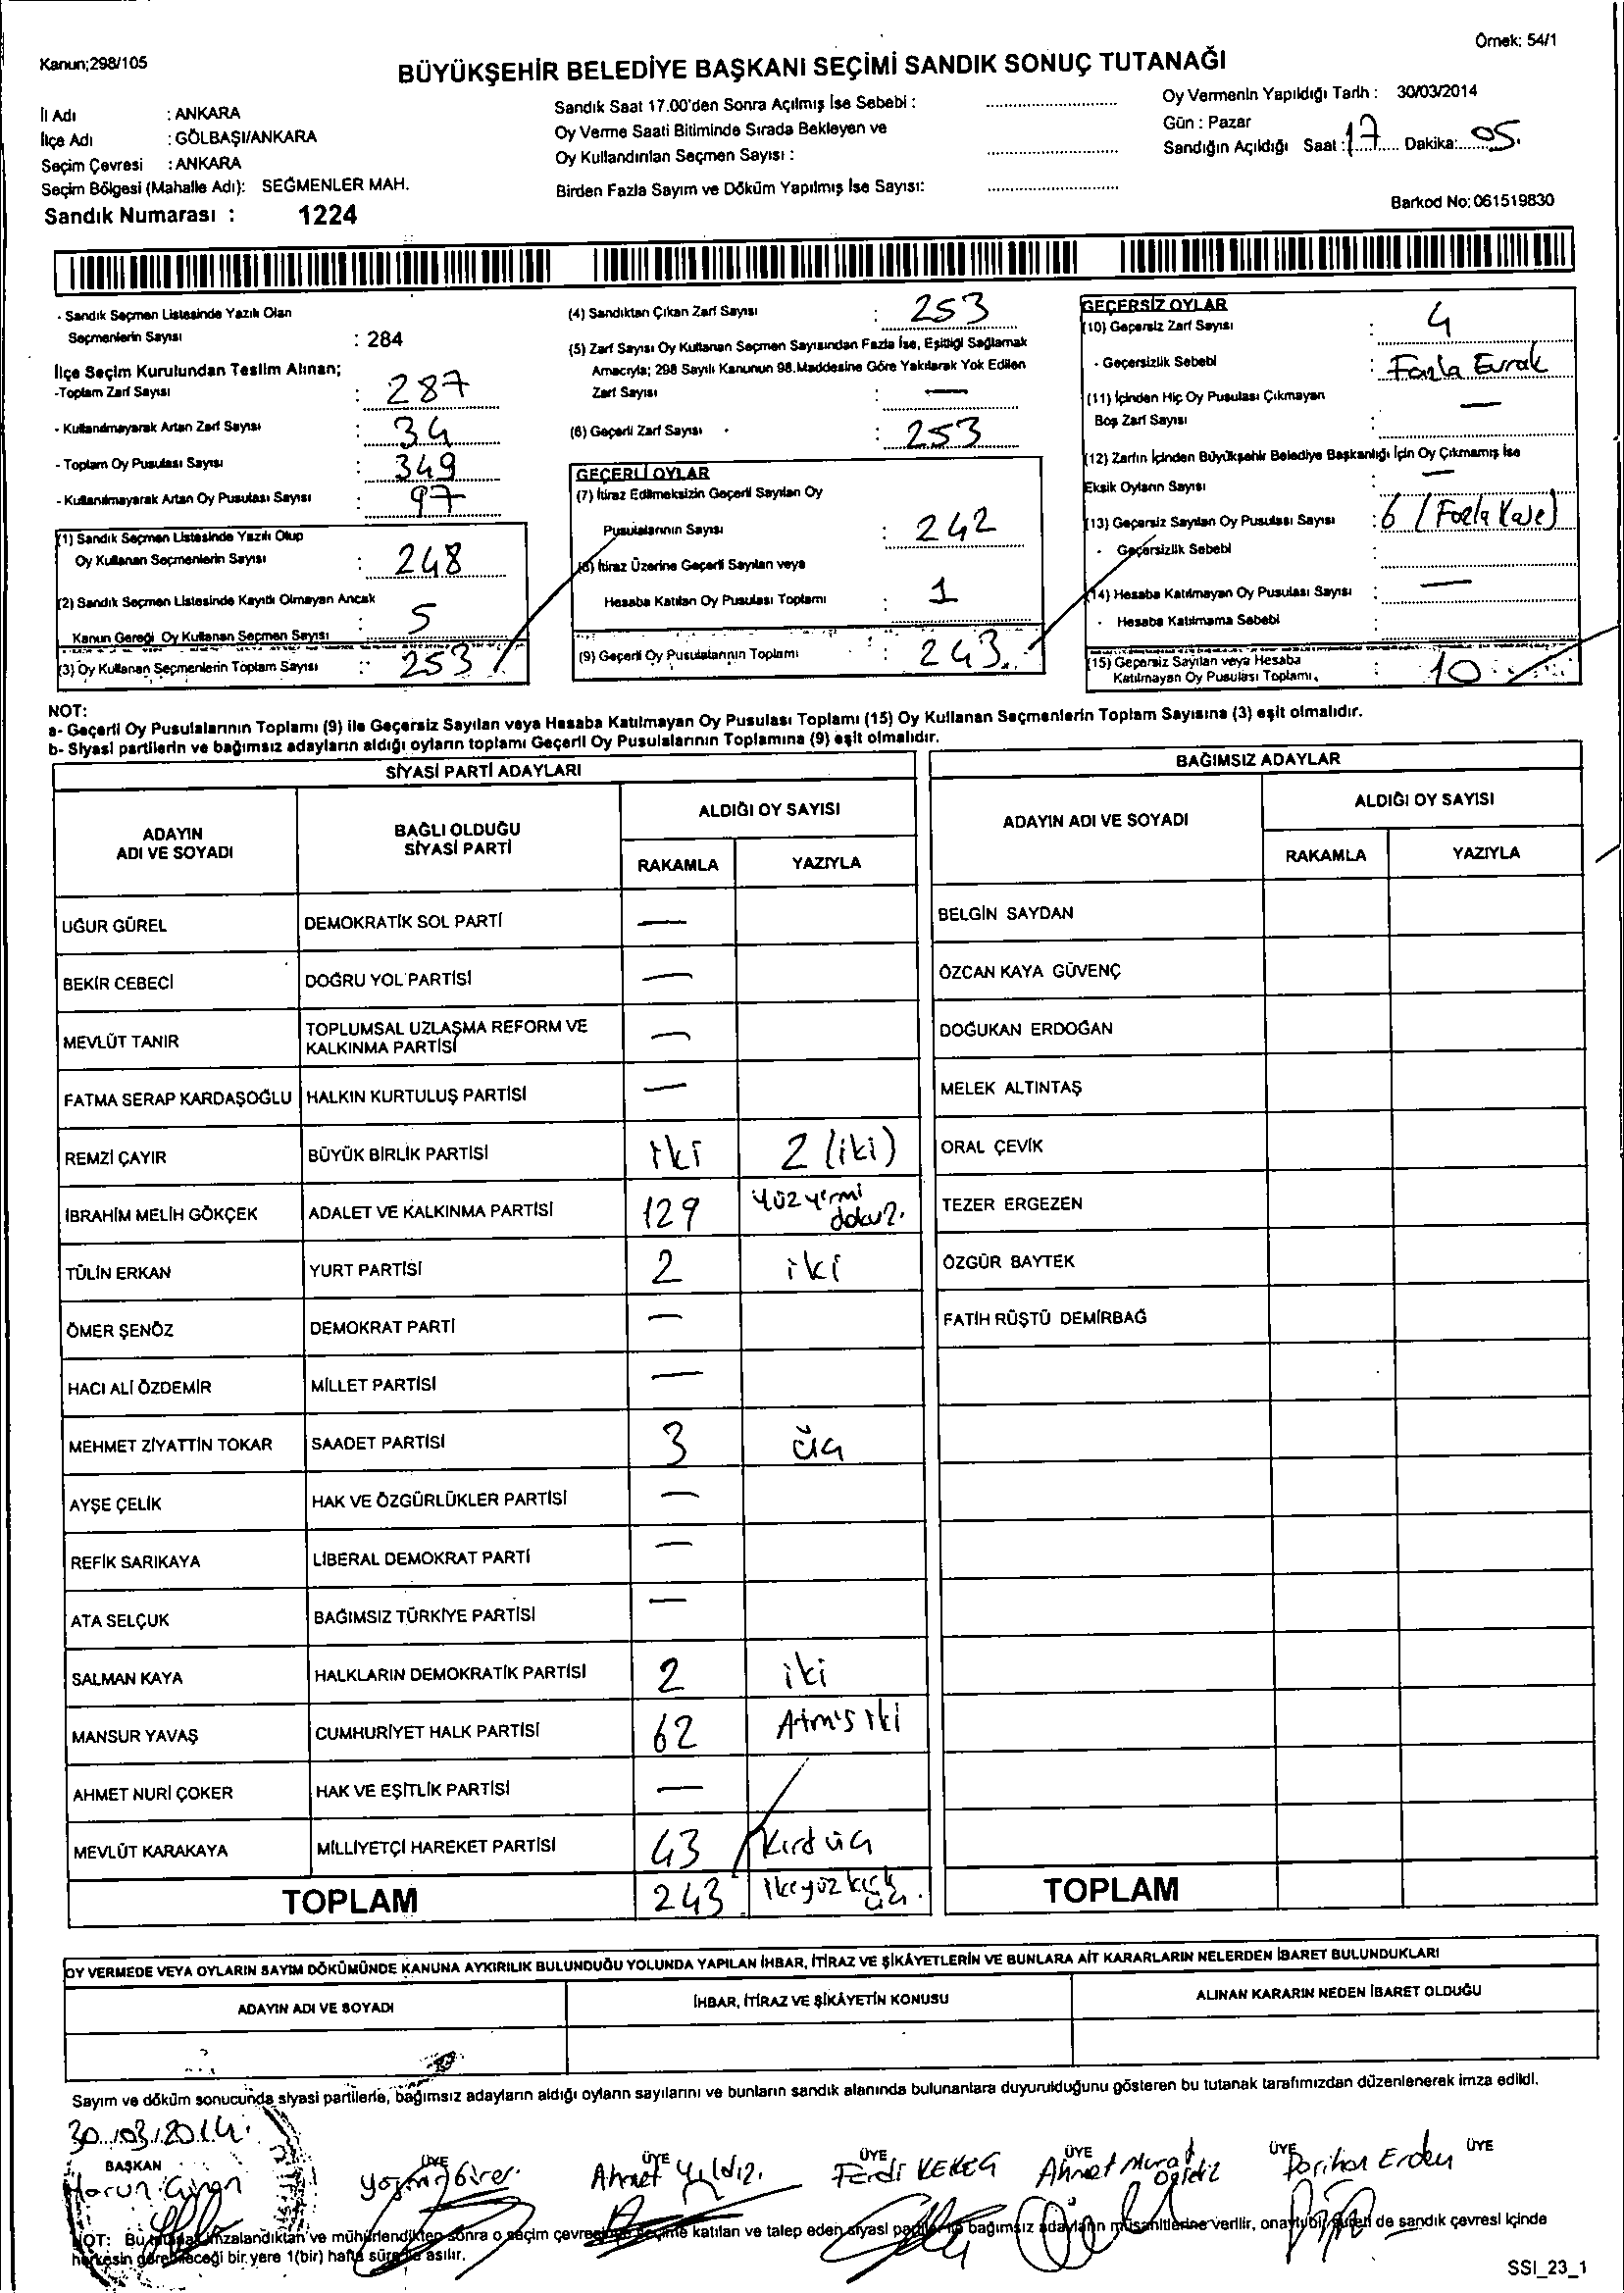 Örnek: 54/1
Kanun;298/105
BÜYÜKŞEHİR BELEDİYE BAŞKANI SEÇİMİ SANDIK SONUÇ TUTANAĞI
İl Adı : ANKARA
İlçe Adı : GÖLBAŞI/ANKARA
Seçim Çevresi : ANKARA
Seçim Bölgesi (Mahalle Adı): SEĞMENLER MAH.
Sandık Numarası : 1224
Sandık Saat 17.00'den Sonra Açılmış İse Sebebi :
Oy Verme Saati Bitiminde Sırada Bekleyen ve
Oy Kullandırılan Seçmen Sayısı :
Birden Fazla Sayım ve Döküm Yapılmış İse Sayısı:
Oy Vermenin Yapıldığı Tarih : 30/03/2014
Gün : Pazar
Sandığın Açıldığı Saat : 17 Dakika: 05.
Barkod No: 061519830
- Sandık Seçmen Listesinde Yazılı Olan
Seçmenlerin Sayısı : 284
İlçe Seçim Kurulundan Teslim Alınan;
-Toplam Zarf Sayısı : 287
- Kullanılmayarak Artan Zarf Sayısı : 34
- Toplam Oy Pusulası Sayısı : 349
- Kullanılmayarak Artan Oy Pusulası Sayısı : 97
(1) Sandık Seçmen Listesinde Yazılı Olup
Oy Kullanan Seçmenlerin Sayısı : 248
(2) Sandık Seçmen Listesinde Kayıtlı Olmayan Ancak
Kanun Gereği Oy Kullanan Seçmen Sayısı : 5
(3) Oy Kullanan Seçmenlerin Toplam Sayısı : 253
(4) Sandıktan Çıkan Zarf Sayısı : 253
(5) Zarf Sayısı Oy Kullanan Seçmen Sayısından Fazla İse, Eşitliği Sağlamak
Amacıyla; 298 Sayılı Kanunun 98.Maddesine Göre Yakılarak Yok Edilen
Zarf Sayısı : —
(6) Geçerli Zarf Sayısı : 253
GEÇERLİ OYLAR
(7) İtiraz Edilmeksizin Geçerli Sayılan Oy
Pusulalarının Sayısı : 242
(8) İtiraz Üzerine Geçerli Sayılan veya
Hesaba Katılan Oy Pusulası Toplamı : 1
(9) Geçerli Oy Pusulalarının Toplamı : 243
GEÇERSİZ OYLAR
(10) Geçersiz Zarf Sayısı : 4
- Geçersizlik Sebebi : Fazla Evrak
(11) İçinden Hiç Oy Pusulası Çıkmayan
Boş Zarf Sayısı : —
(12) Zarfın İçinden Büyükşehir Belediye Başkanlığı İçin Oy Çıkmamış İse
Eksik Oyların Sayısı : —
(13) Geçersiz Sayılan Oy Pusulası Sayısı : 6 (Fazla Kaşe)
- Geçersizlik Sebebi :
(14) Hesaba Katılmayan Oy Pusulası Sayısı : —
- Hesaba Katılmama Sebebi :
(15) Geçersiz Sayılan veya Hesaba
Katılmayan Oy Pusulası Toplamı. : 10
NOT:
a- Geçerli Oy Pusulalarının Toplamı (9) ile Geçersiz Sayılan veya Hesaba Katılmayan Oy Pusulası Toplamı (15) Oy Kullanan Seçmenlerin Toplam Sayısına (3) eşit olmalıdır.
b- Siyasi partilerin ve bağımsız adayların aldığı oyların toplamı Geçerli Oy Pusulalarının Toplamına (9) eşit olmalıdır.
SİYASİ PARTİ ADAYLARI
ADAYIN ADI VE SOYADI BAĞLI OLDUĞU SİYASİ PARTİ ALDIĞI OY SAYISI
RAKAMLA YAZIYLA
UĞUR GÜREL DEMOKRATİK SOL PARTİ —
BEKİR CEBECİ DOĞRU YOL PARTİSİ —
MEVLÜT TANIR TOPLUMSAL UZLAŞMA REFORM VE KALKINMA PARTİSİ —
FATMA SERAP KARDAŞOĞLU HALKIN KURTULUŞ PARTİSİ —
REMZİ ÇAYIR BÜYÜK BİRLİK PARTİSİ iki 2 (iki)
İBRAHİM MELİH GÖKÇEK ADALET VE KALKINMA PARTİSİ 129 yüz yirmi dokuz.
TÜLİN ERKAN YURT PARTİSİ 2 iki
ÖMER ŞENÖZ DEMOKRAT PARTİ —
HACI ALİ ÖZDEMİR MİLLET PARTİSİ —
MEHMET ZİYATTİN TOKAR SAADET PARTİSİ 3 üç
AYŞE ÇELİK HAK VE ÖZGÜRLÜKLER PARTİSİ —
REFİK SARIKAYA LİBERAL DEMOKRAT PARTİ —
ATA SELÇUK BAĞIMSIZ TÜRKİYE PARTİSİ —
SALMAN KAYA HALKLARIN DEMOKRATİK PARTİSİ 2 iki
MANSUR YAVAŞ CUMHURİYET HALK PARTİSİ 62 Atmış iki
AHMET NURİ ÇOKER HAK VE EŞİTLİK PARTİSİ —
MEVLÜT KARAKAYA MİLLİYETÇİ HAREKET PARTİSİ 43 Kırk üç
TOPLAM 243 ikiyüz kırk üç.
BAĞIMSIZ ADAYLAR
ADAYIN ADI VE SOYADI ALDIĞI OY SAYISI
RAKAMLA YAZIYLA
BELGİN SAYDAN
ÖZCAN KAYA GÜVENÇ
DOĞUKAN ERDOĞAN
MELEK ALTINTAŞ
ORAL ÇEVİK
TEZER ERGEZEN
ÖZGÜR BAYTEK
FATİH RÜŞTÜ DEMİRBAĞ
TOPLAM
OY VERMEDE VEYA OYLARIN SAYIM DÖKÜMÜNDE KANUNA AYKIRILIK BULUNDUĞU YOLUNDA YAPILAN İHBAR, İTİRAZ VE ŞİKÂYETLERİN VE BUNLARA AİT KARARLARIN NELERDEN İBARET BULUNDUKLARI
ADAYIN ADI VE SOYADI İHBAR, İTİRAZ VE ŞİKÂYETİN KONUSU ALINAN KARARIN NEDEN İBARET OLDUĞU
Sayım ve döküm sonucunda siyasi partilerle, bağımsız adayların aldığı oyların sayılarını ve bunların sandık alanında bulunanlara duyurulduğunu gösteren bu tutanak tarafımızdan düzenlenerek imza edildi.
30.03.2014
BAŞKAN ÜYE ÜYE ÜYE ÜYE ÜYE ÜYE
Harun Ahmet Yıldız. Ferdi KEKEÇ Ahmet Murat Perihan Erden
NOT: Bu tutanak imzalandıktan ve mühürlendikten sonra o seçim çevresinde seçime katılan ve talep eden siyasi partiler ile bağımsız adayların müşahitlerine verilir, onaylı bir sureti de sandık çevresi içinde
herkesin görebileceği bir yere 1(bir) hafta süreyle asılır.
SSI_23_1